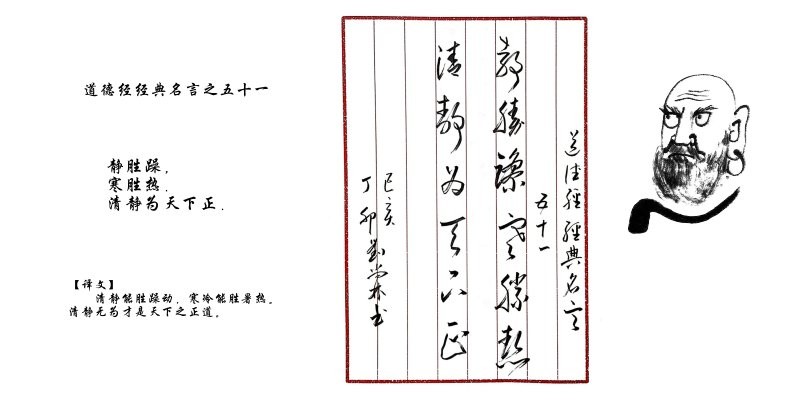 道德经经典名言之五十一
静胜躁,
寒胜热.
清静为天下正.
【译文】
清静能胜躁动,寒冷能胜暑热。
清静无为才是天下之正道。
道德經經典名言
五十一
靜勝躁寒勝熱
清靜为天下正
己亥
丁卯书